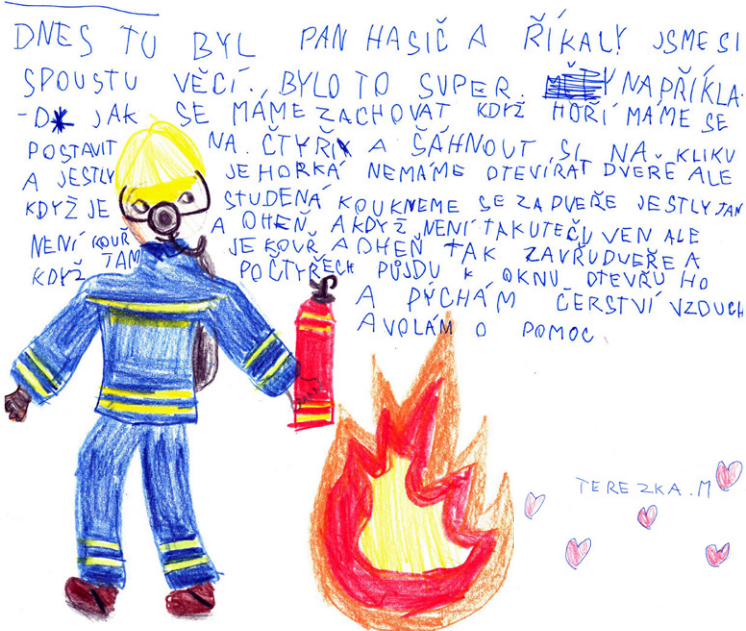 DNES TU BYL PAN HASIČ A ŘÍKALY JSME SI
SPOUSTU VĚCÍ. BYLO TO SUPER. NAPŘÍKLA-
-D JAK SE MÁME ZACHOVAT KDYŽ HOŘÍ MÁME SE
POSTAVIT NA ČTYŘI A ŠÁHNOUT SI NA KLIKU
A JESTLY JE HORKÁ NEMÁME OTEVÍRAT DVEŘE ALE
KDYŽ JE STUDENÁ KOUKNEME SE ZA DVEŘE JESTLY TAM
NENÍ KOUŘ A OHEŇ A KDYŽ NENÍ TAK UTEČU VEN ALE
KDYŽ TAM JE KOUŘ A OHEŇ TAK ZAVŘU DVEŘE A
PO ČTYŘECH PŮJDU K OKNU OTEVŘU HO
A DÝCHÁM ČERSTVÍ VZDUCH
A VOLÁM O POMOC
TEREZKA.M